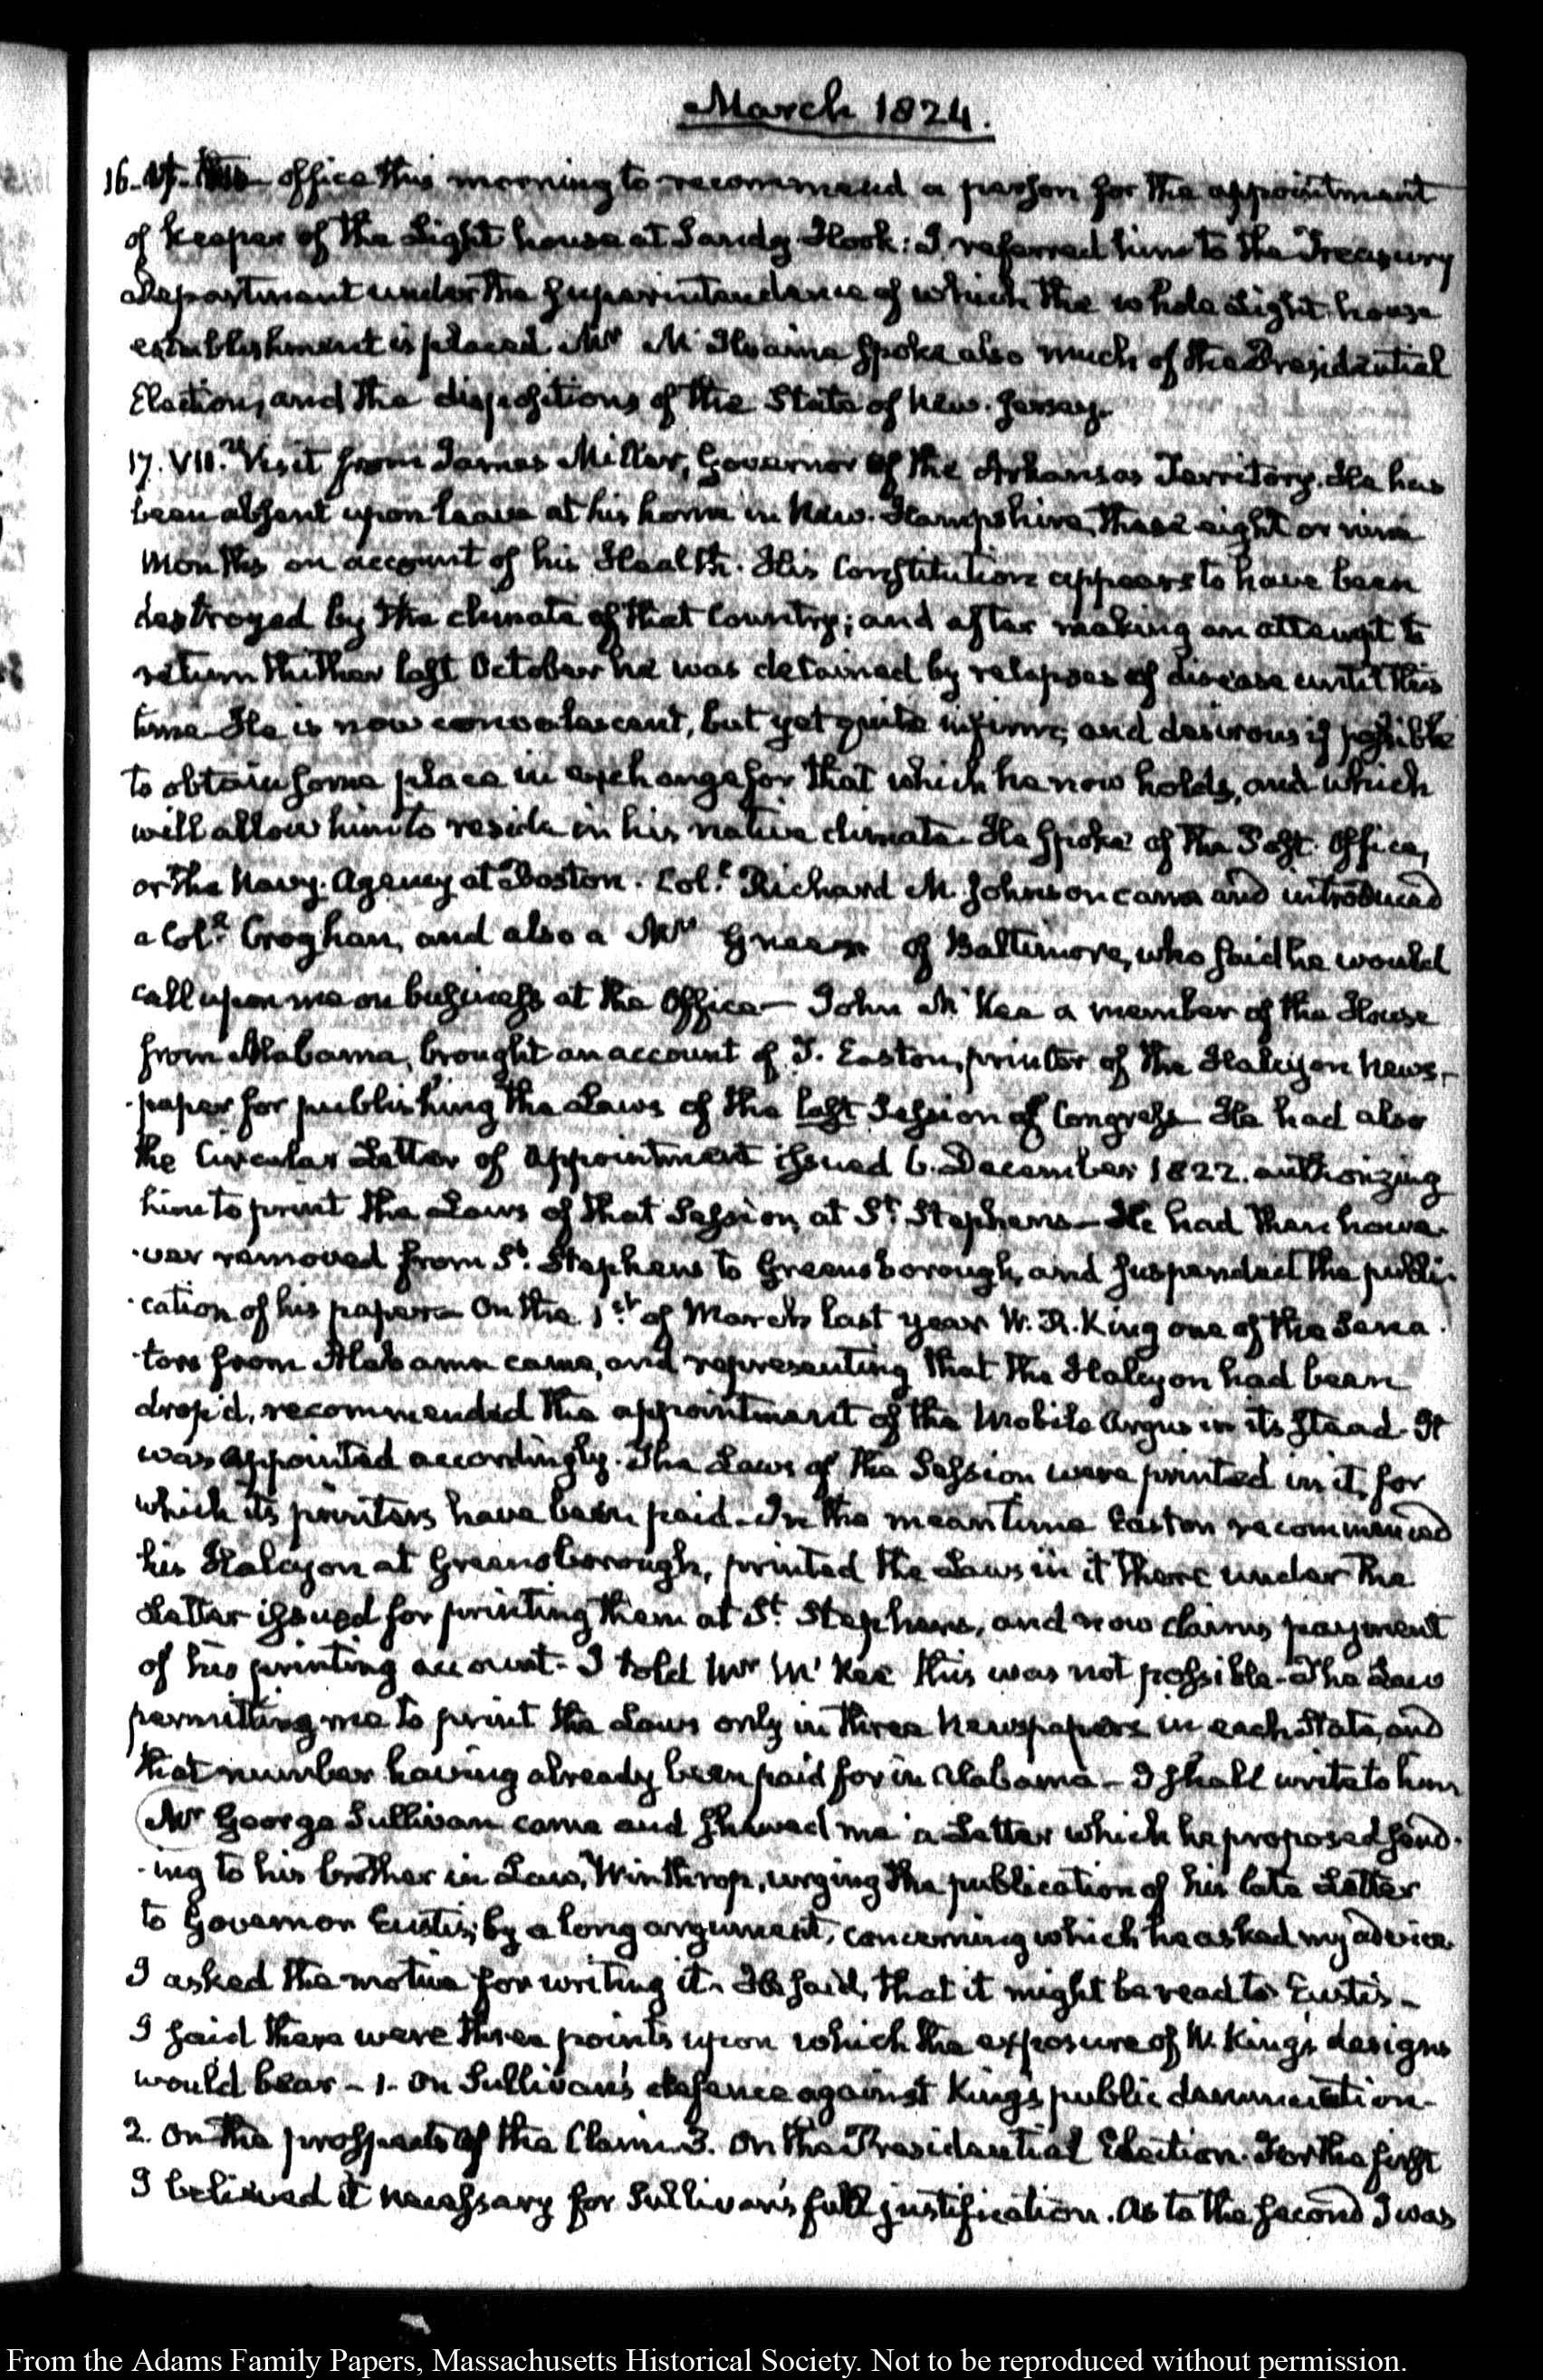 March 1824.
16. At the office this morning to recommend a person for the appointment
of keeper of the Light house at Sandy Hook: I referred him to the Treasury
Department under the superintendence of which the whole Light-house
establishment is placed Mr McIlvaine spoke also much of the Presidential
Election, and the dispositions of the State of New-Jersey.
17. VII. Visit from James Miller, Governor of the Arkansas Territory. He has
been absent upon leave at his home in New-Hampshire, these eight or nine
Months on account of his Health. His Constitution appears to have been
destroyed by the climate of that Country; and after making an attempt to
return thither last October he was detained by relapses of disease until this
time. He is now convalescent, but yet quite infirm, and desirous if possible
to obtain some place in exchange for that which he now holds, and which
will allow him to reside in his native climate. He spoke of the Post-Office,
or the Navy-Agency at Boston. Coll. Richard M. Johnson came and introduced
a Coll. Croghan, and also a Mr Green of Baltimore, who said he would
call upon me on business at the Office— John McKee a member of the House
from Alabama, brought an account of T. Easton, printer of the Halcyon News-
-paper for publishing the Laws of the last Session of Congress— He had also
the Circular Letter of appointment issued 6. December 1822. authorizing
him to print the Laws of that Session, at St. Stephens— He had then howe-
-ver removed from St. Stephens to Greensborough, and suspended the publi-
-cation of his paper— On the 1st. of March last year W. R. King one of the Sena-
-tors from Alabama came, and representing that the Halcyon had been
drop'd, recommended the appointment of the Mobile Argus in its stead. It
was appointed accordingly. The Laws of the Session were printed in it, for
which its printers have been paid. In the meantime Easton recommenced
his Halcyon at Greensborough, printed the Laws in it there under the
Letter issued for printing them at St. Stephens, and now claims payment
of his printing account. I told Mr McKee this was not possible. The Law
permitting me to print the Laws only in three Newspapers in each State, and
that number having already been paid for in Alabama— I shall write to him
Mr George Sullivan came and shewed me a Letter which he proposed send-
-ing to his brother in Law, Winthrop, urging the publication of his late Letter
to Governor Eustis; by a long argument, concerning which he asked my advice
I asked the motive for writing it. He said, that it might be read to Eustis—
I said there were three points upon which the exposure of W. King's designs
would bear— 1. On Sullivan's defence against King's public denunciation—
2. On the prospects of the Claim. 3. On the Presidential Election. For the first
I believed it necessary for Sullivan's full justification. As to the second I was
From the Adams Family Papers, Massachusetts Historical Society. Not to be reproduced without permission.